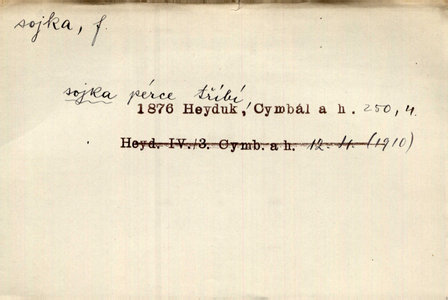 sojka, f.
sojka pérce tříbí,
1876 Heyduk, Cymbál a h. 250, 4.
Heyd. IV./3. Cymb. a h. 12-11. (1910)